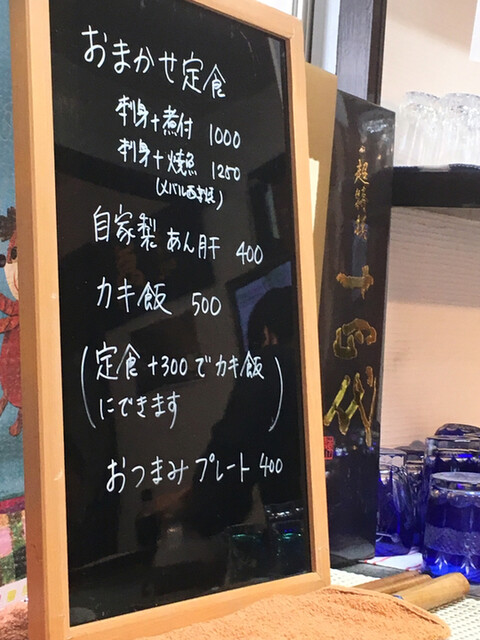 おまかせ定食
刺身+煮付 1000
刺身+焼魚 1250
(メバル西京)
自家製 あん肝 400
カキ飯 500
(定食+300でカキ飯
にできます)
おつまみプレート 400
超特撰
十四代